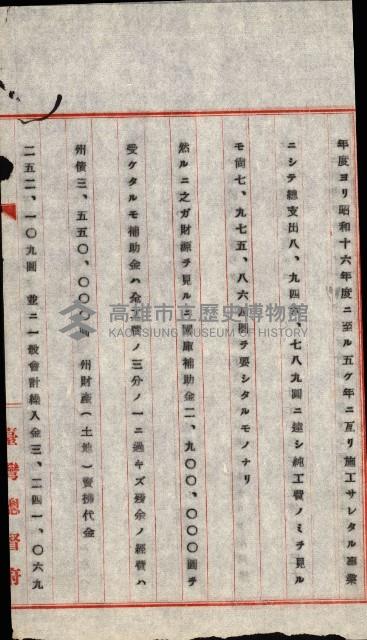 年度ヨリ昭和十六年度ニ至ル五ケ年ニ亙リ施工サレタル事業
ニシテ總支出八、九四 、七八九圓ニ達シ純工費ノミヲ見ル
モ尙七、九七五、八六 圓ヲ要シタルモノナリ
然ルニ之ガ財源ヲ見ルニ國庫補助金二、九〇〇、〇〇〇圓ヲ
受ケタルモ補助金ハ全工費ノ三分ノ一ニ過ギズ殘余ノ經費ハ
州債三、五五〇、〇〇 州財產(土地)賣拂代金
二五二、一〇九圓 並ニ一般會計繰入金三、二四一、〇六九
臺灣總督府
高雄市立歷史博物館
KAOHSIUNG MUSEUM OF HISTORY